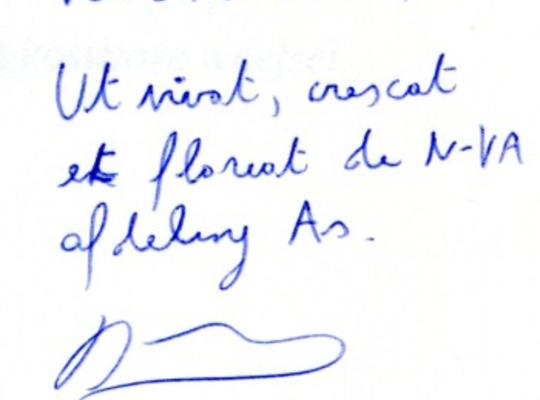 Ut vivat, crescat
et floreat de N-VA
afdeling As.